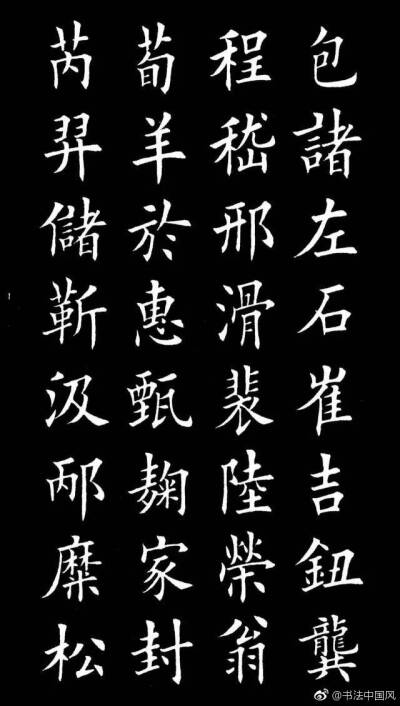 包諸左石崔吉鈕龔
程嵇邢滑裴陸榮翁
荀羊於惠甄麴家封
芮羿儲靳汲邴糜松
@书法中国风